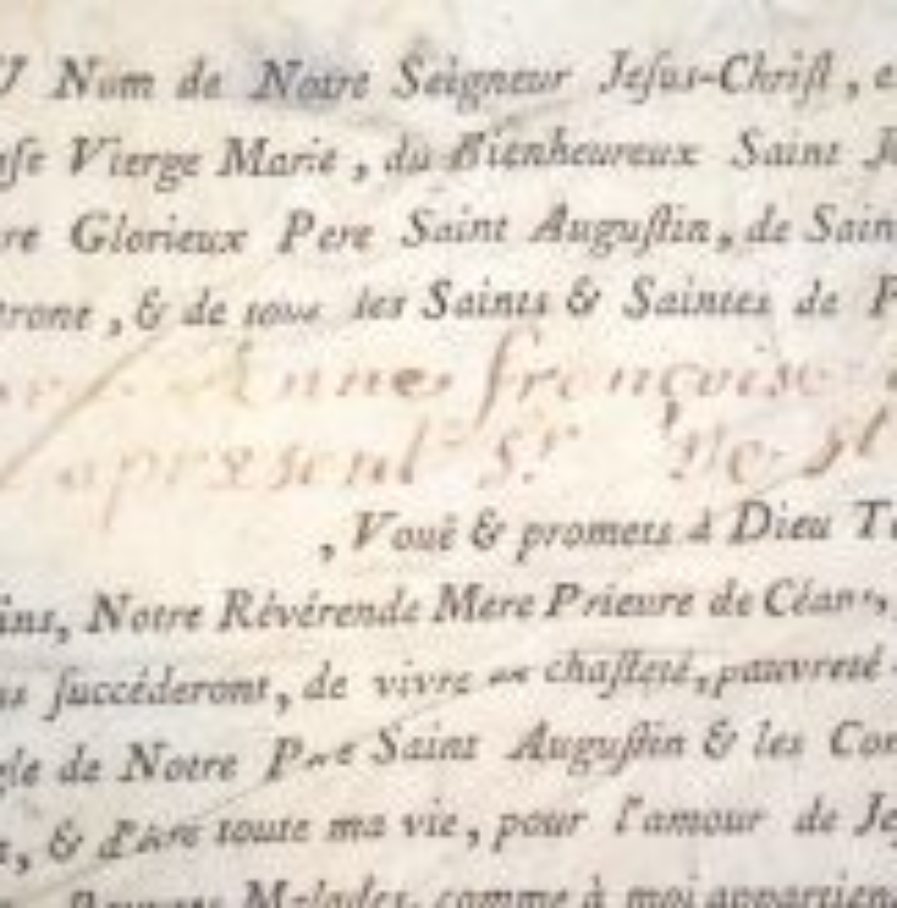 U Nom de Notre Seigneur Jeſus-Chriſt, e
uſe Vierge Marie, du Bienheureux Saint J
re Glorieux Pere Saint Auguſtin, de Sain
trone, & de tous les Saints & Saintes de P
Anne françoise
apresent Sr De St
, Vouë & promets à Dieu T
ins, Notre Révérende Mere Prieure de Céans,
us ſuccéderont, de vivre en chaſteté, pauvreté
gle de Notre Pere Saint Auguſtin & les Con
, & d'être toute ma vie, pour l'amour de Je
Pauvres Malades, comme à moi appartien